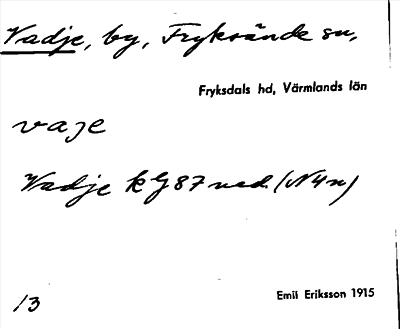 Vadje, by, Fryksände sn,
Fryksdals hd, Värmlands län
vaje
Vadje k G 87 ned. (N4n)
Emil Eriksson 1915
13